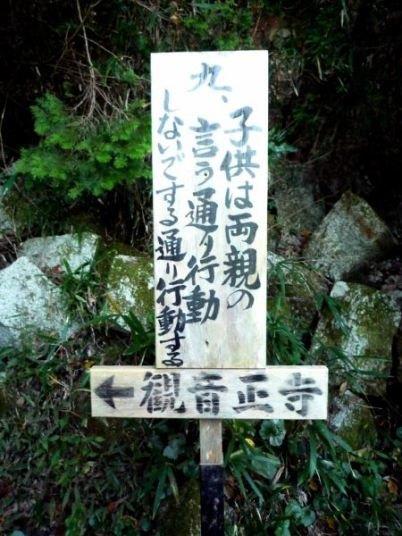 九、
子供は両親の
言う通り行動
しないでする通り行動する
←観音正寺